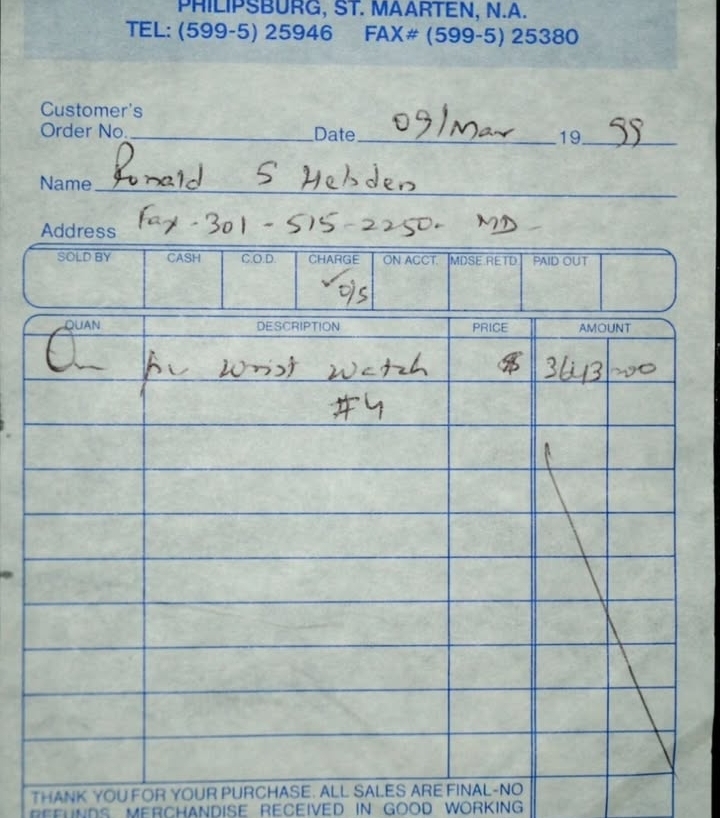 PHILIPSBURG, ST. MAARTEN, N.A.
TEL: (599-5) 25946 FAX# (599-5) 25380
Customer's
Order No. Date 09/Mar 19 99
Name Ronald S Hebden
Address Fax - 301 - 515 - 2250. MD -
SOLD BY CASH C.O.D. CHARGE ON ACCT. MDSE.RETD. PAID OUT
QUAN DESCRIPTION PRICE AMOUNT
wrist watch $ 3643 00
#4
THANK YOU FOR YOUR PURCHASE. ALL SALES ARE FINAL-NO
REFUNDS. MERCHANDISE RECEIVED IN GOOD WORKING